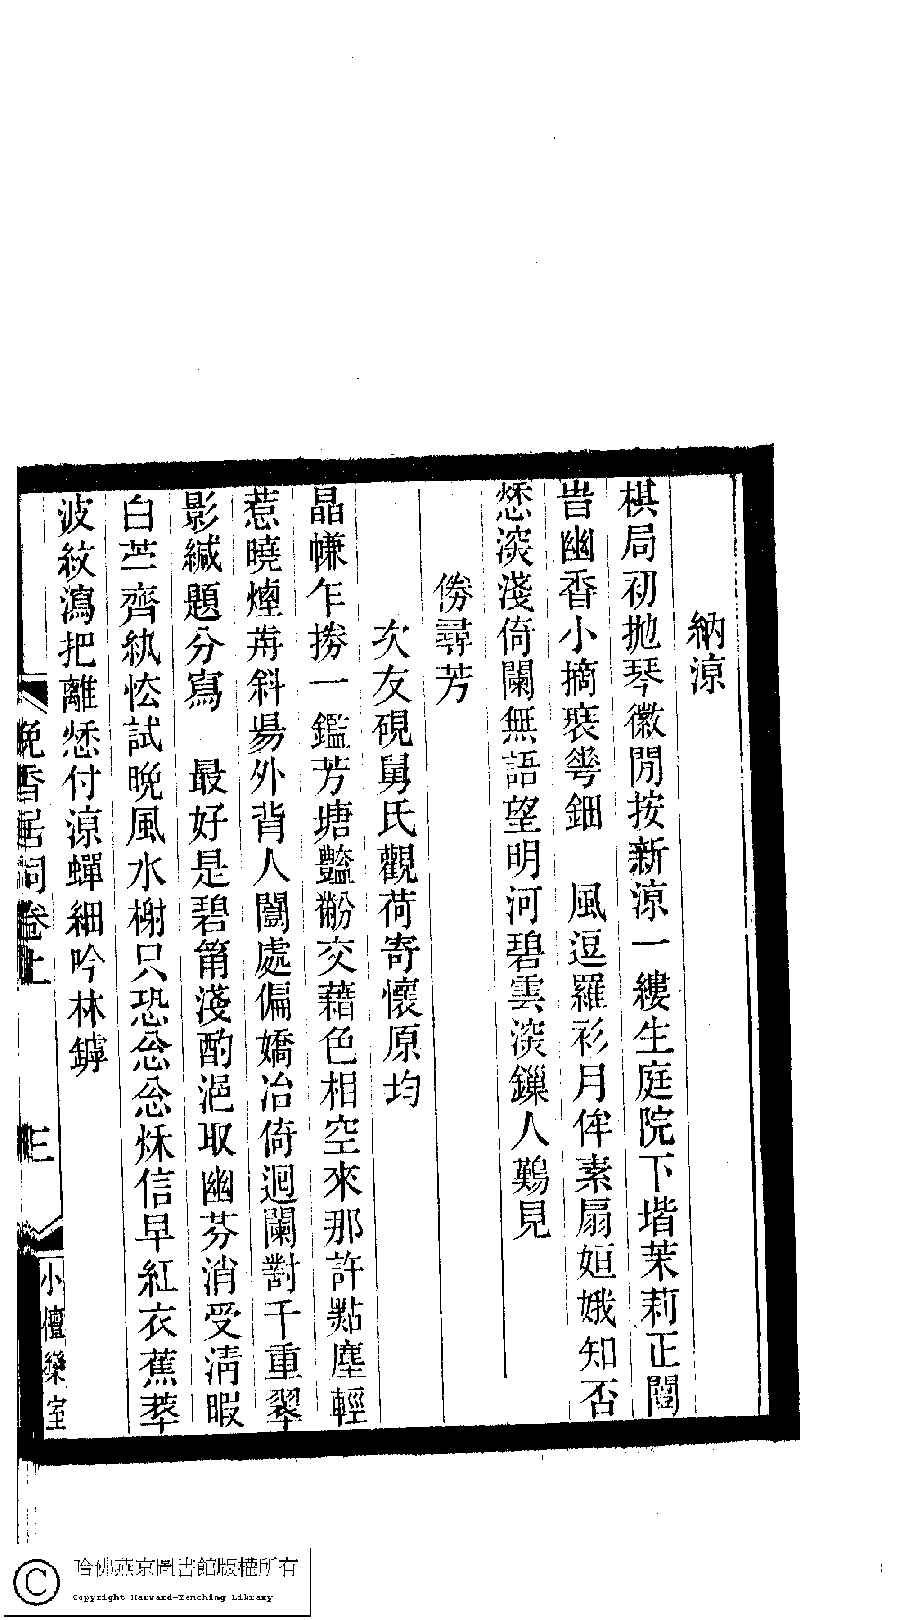 納涼
棋局初拋琴徽閒按新涼一縷生庭院下堦茉莉正闓
旹幽香小摘裵䔢鈿　風逗羅衫月侔素扇姮娥知否
愁深淺倚闌無語望明河碧雲深鏁人鷄見
傍尋芳
次友硯舅氏觀荷寄懷原均
晶㡘乍搒一鑑芳塘豔黺交藉色相空來那許點塵輕
惹曉煙苒斜昜外背人闓處偏嬌冶倚迴闌對千重翠
影緘題分寫　最好是碧筩淺酌浥取幽芬消受清暇
白苎齊紈恡試晚風水榭只恐怱怱烁信早紅衣蕉萃
波紋瀉把離愁付涼蟬細吟林罅
晚香居詞卷上
三
小檀欒室
哈佛燕京圖書館版權所有
Copyright Harvard-Yenching Library